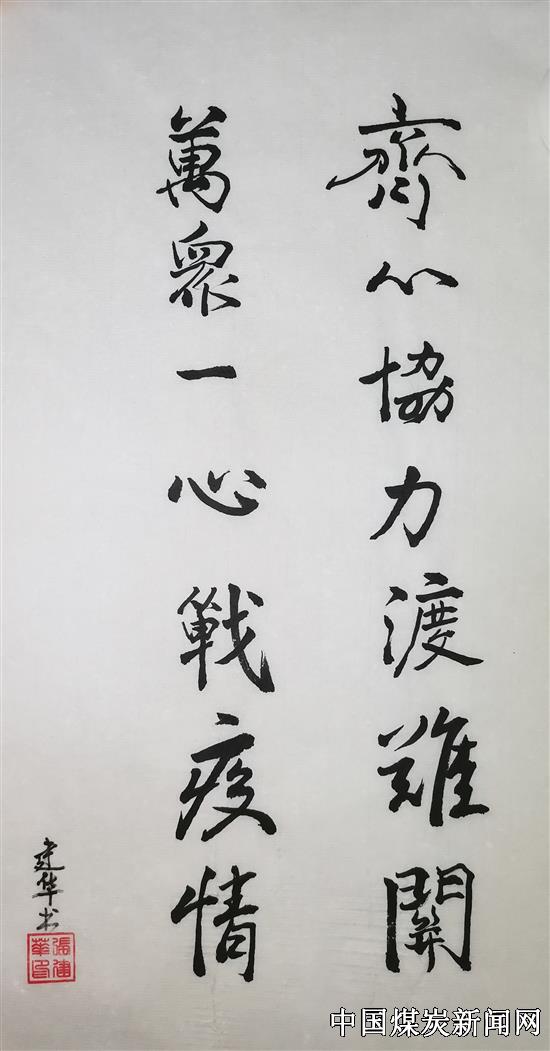 齊心協力渡難關
萬眾一心戰疫情
建华书
張建華印
中国煤炭新闻网